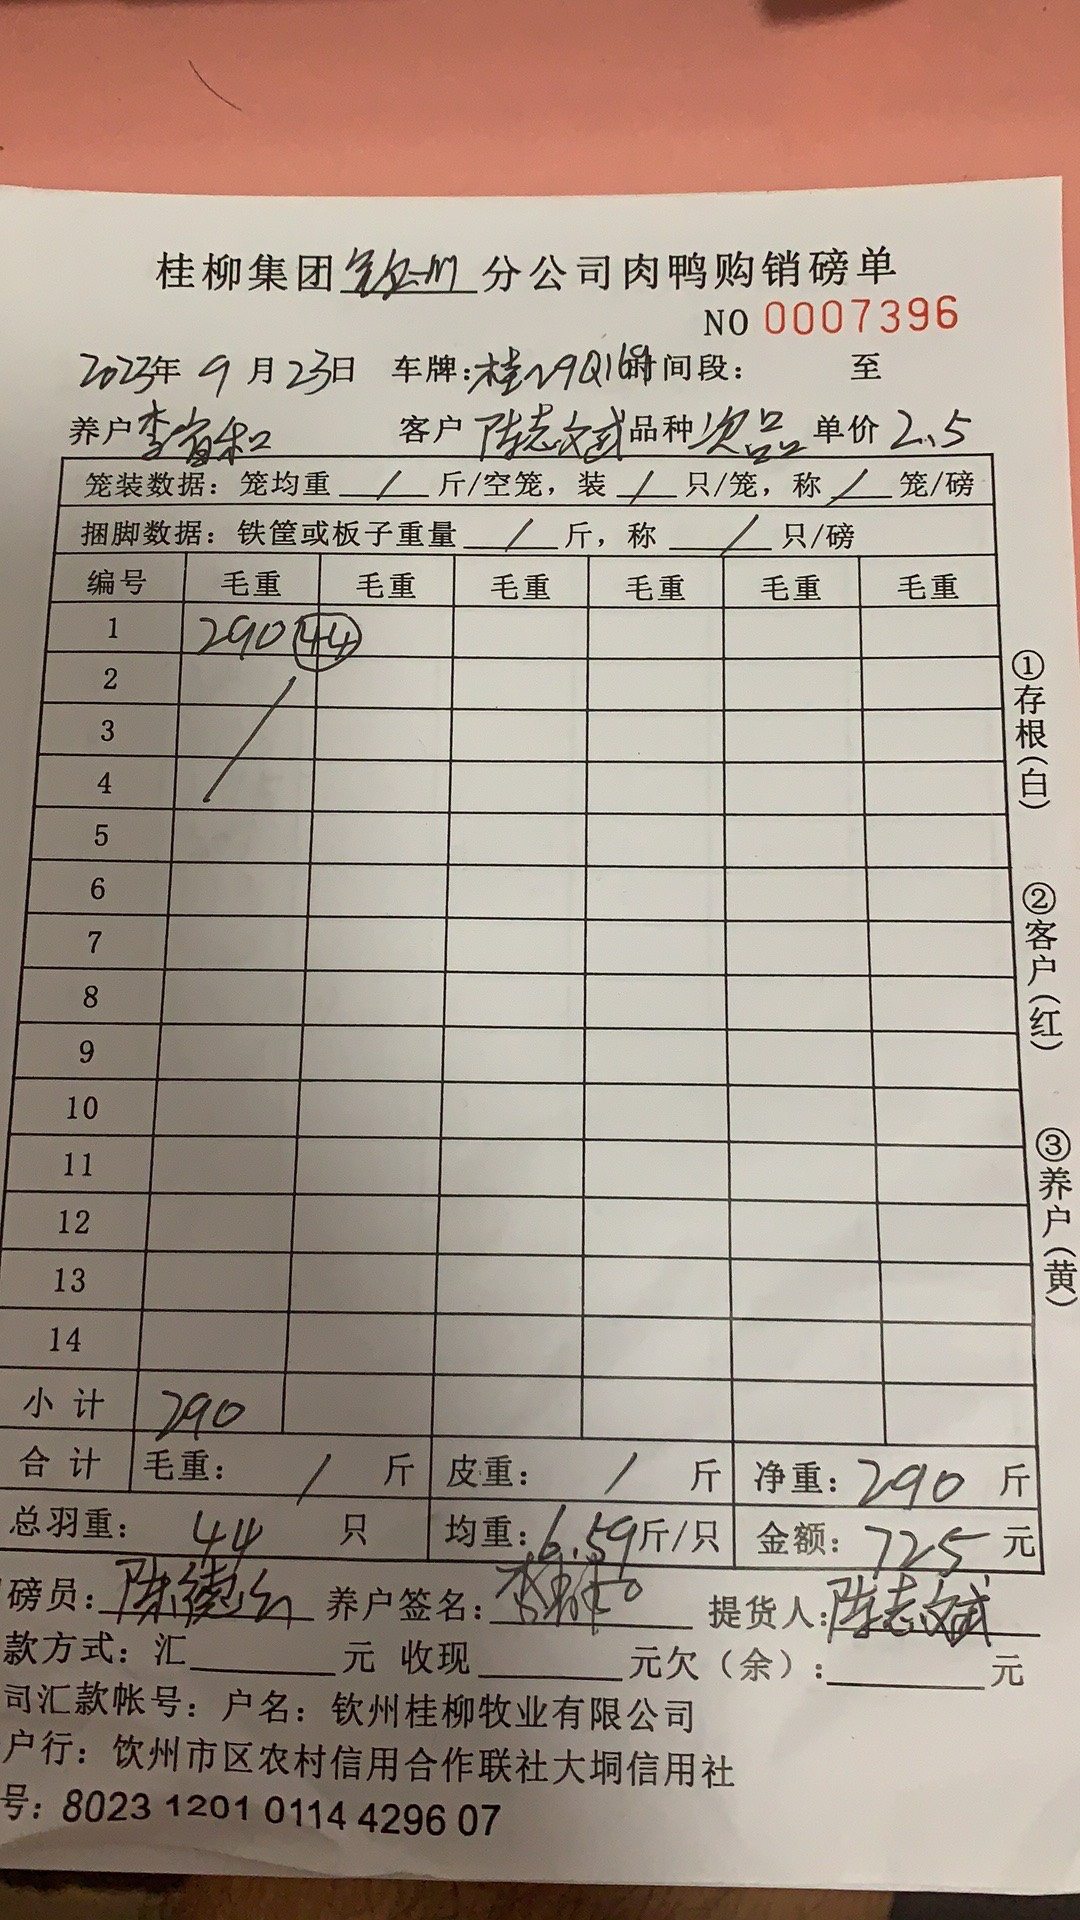 桂柳集团钦州分公司肉鸭购销磅单
NO 0007396
2023年 9月23日 车牌: 时间段: 至
养户 李富和 客户 陈志文斌 品种 次品 单价 2.5
笼装数据: 笼均重 / 斤/空笼, 装 / 只/笼, 称 / 笼/磅
捆脚数据: 铁筐或板子重量 / 斤, 称 / 只/磅
编号 毛重 毛重 毛重 毛重 毛重 毛重
1 290 44
2
3
4
5
6
7
8
9
10
11
12
13
14
小计 290
合计 毛重: / 斤 皮重: / 斤 净重: 290 斤
总羽重: 44 只 均重: 6.59斤/只 金额: 725 元
磅员: 养户签名: 提货人:陈志文斌
款方式: 汇 元 收现 元欠(余): 元
司汇款帐号: 户名: 钦州桂柳牧业有限公司
户行: 饮州市区农村信用合作联社大垌信用社
号: 8023 1201 0114 4296 07
①存根(白)
②客户(红)
③养户(黄)